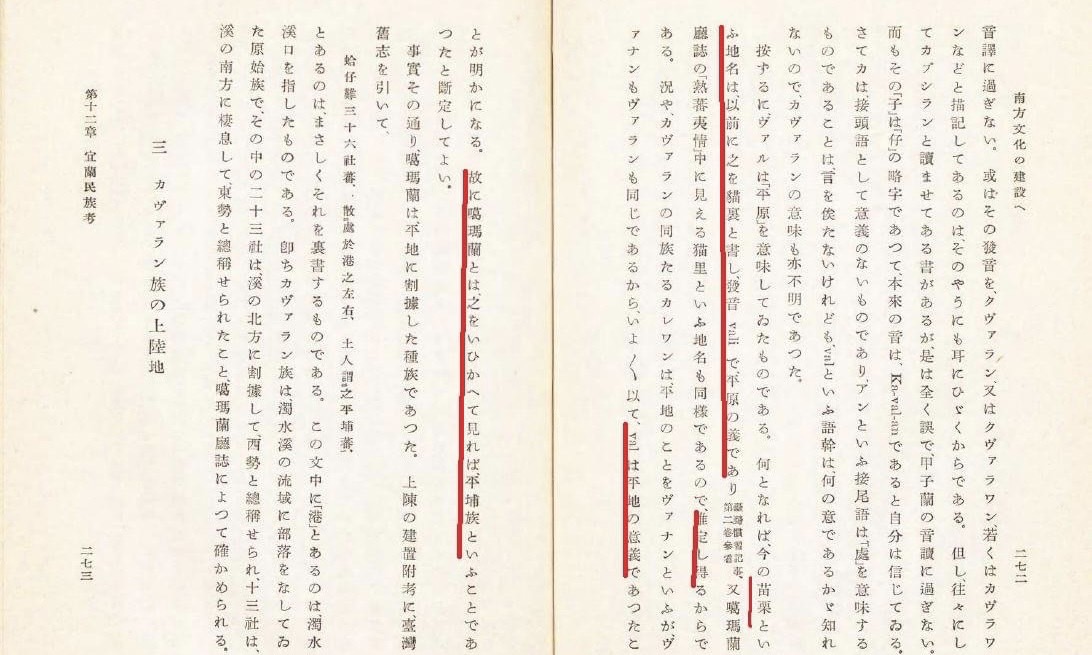 南方文化の建設へ
二七二
音譯に過ぎない。或はその發音を、クヴァラン、又はクヴァラワン、若くはカヴラワ
ンなどと描記してあるのは、そのやうにも耳にひゞくからである。但し、往々にし
てカブシランと讀ませてある書があるが、是は全く誤で甲子蘭の音讀に過ぎない。
而もその『子』は『仔』の略字であつて、本來の音は、Ka-val-anであると自分は信じてゐる。
さてカは、接頭語として意義のないものであり、アンといふ接尾語は『處』を意味する
ものであることは、言を俟たないけれども、valといふ語幹は、何の意であるかゞ知れ
ないので、カヴァランの意味も亦不明であつた。
按ずるにヴァルは『平原』を意味してゐたものである。何となれば今の苗栗とい
ふ地名は、以前に之を貓裏と書し、發音 vali で平原の義であり 臺灣慣習記事、第二卷參看 又噶瑪蘭
廳誌の『熟蕃夷情』中に見える猫里といふ地名も同樣であるので、推定し得るからで
ある。況や、カヴァランの同族たるカレワンは、平地のことをヴァナンといふがヴ
ァナンもヴァランも同じであるから、いよ〳〵以て、val は平地の意義であつたこ
とが明かになる。故に噶瑪蘭とは之をいひかへて見れば、平埔族といふことであ
つたと斷定してよい。
事實その通り、噶瑪蘭は平地に割據した種族であつた。上陳の建置附考に、臺灣
舊志を引いて、
蛤仔難三十六社蕃、散處於港之左右、土人謂之平埔蕃、
とあるのは、まさしくそれを裏書するものである。この文中に『港』とあるのは、濁水
溪口を指したものである。卽ちカヴァラン族は、濁水溪の流域に部落をなしてゐ
た原始族で、その中の二十三社は、溪の北方に割據して、西勢と總稱せられ、十三社は、
溪の南方に棲息して東勢と總稱せられたこと、噶瑪蘭廳誌によつて確かめられる。
三 カヴァラン族の上陸地
第十二章 宜蘭民族考
二七三